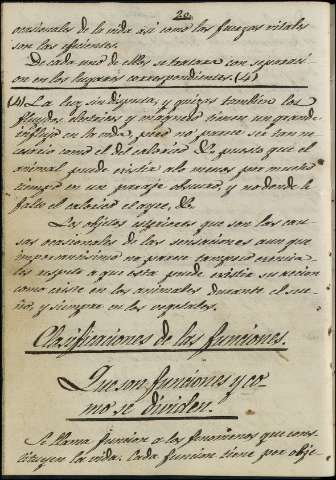 20
ocasionales de la vida asi como las fuerzas vitales
son las eficientes.
De cada uno de ellos se tratara con separaci-
on en los lugares correspondientes. (4)
(4) La luz sin disputa, y quizas tambien los
fluydos electrico y magnetico tienen un grande
influjo en la vida, pero no parece ser tan ne-
cesario como el del calorico &c. puesto que el
animal puede existir alo menos por mucho
tiempo en un paraje obscuro, y no donde le
falte el calorico el ayre, &c
Los objetos esteriores que son las cau-
sas ocasionales de las sensaciones aun que
importantisimo no parece tampoco esencia
respeto a que esta puede existir su accion
como existe en los animales durante el sue-
ño, y siempre en los vegetales.
Clasificaciones de las funciones.
Que son funciones y co-
mo se dividen.
Se llama funcion a los fenomenos que cons-
tituyen la vida. Cada funcion tiene por obje-